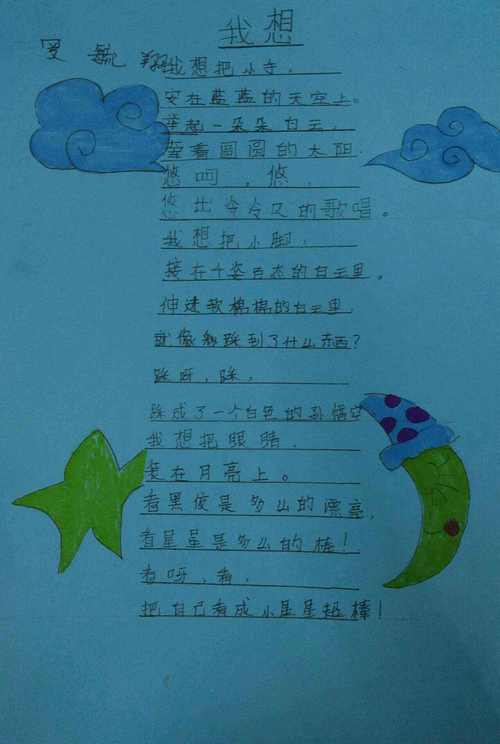 我想
罗 毓 翔
我想把小手，
安在蓝蓝的天空上。
牵起一朵朵白云，
望着圆圆的太阳.
悠 呵 ，悠 .
悠 出 的歌唱。
我想把小脚，
接在千姿百态的白云里。
伸进软棉棉的白云里，
就像 踩到了什么东西?
踩呀，踩，
踩成了一个白色的孙悟空
我想把眼睛，
装在月亮上。
看黑夜是多么的漂亮，
看星星是多么的棒!
看呀，看，
把自己看成小星星超棒!